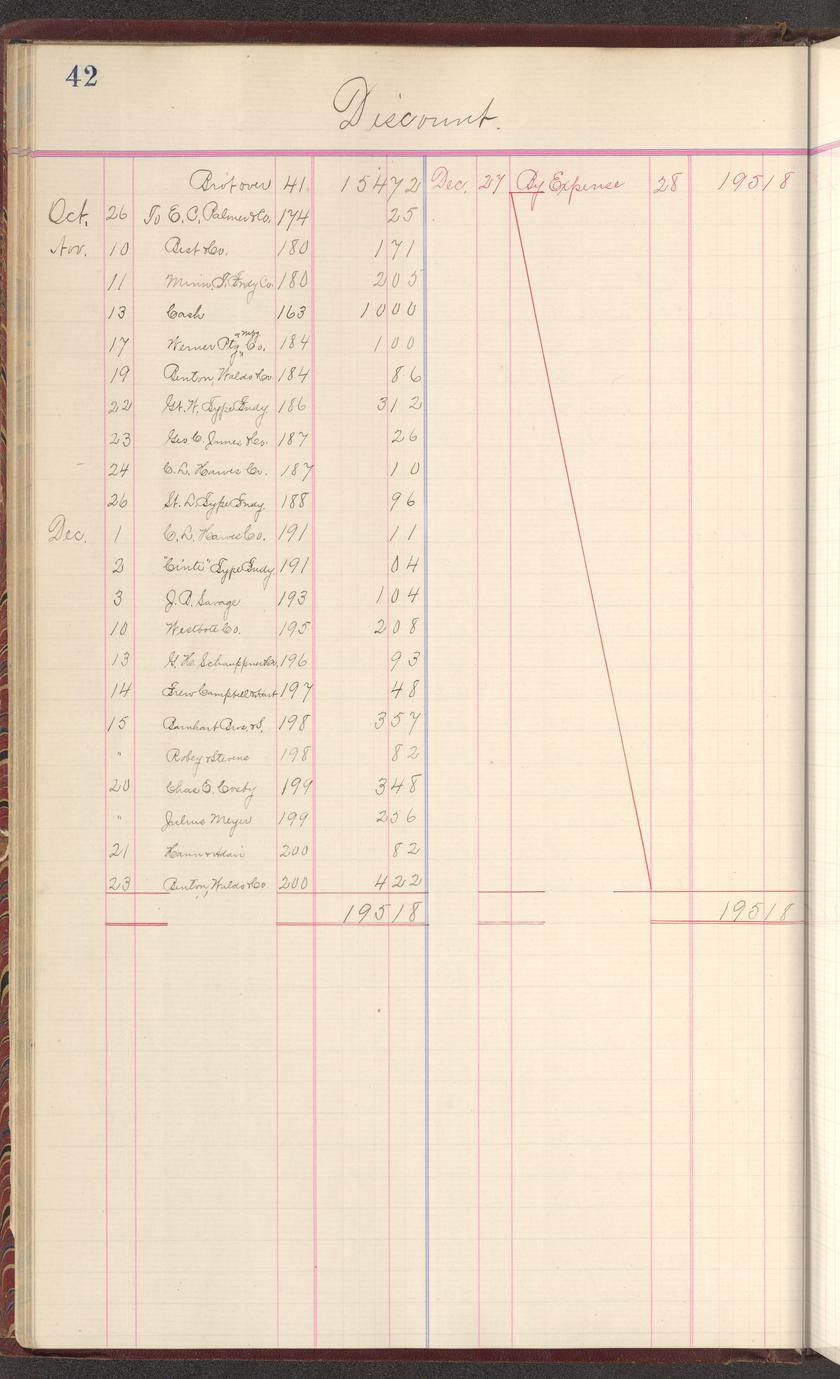 42
Discount.
Bro't over 41 154 72 Dec. 27 By Expense 28 195 18
Oct. 26 To E. C. Palmer & Co. 174 25
Nov. 10 Best & Co. 180 1 71
11 Minn. T. Fndy Co. 180 2 05
13 Cash 163 10 00
17 Werner Ptg & Mfg. Co. 184 1 00
19 Benton, Waldo & Co. 184 86
22 Gt. W. Type Fndy. 186 3 12
23 Geo C. Innes & Co. 187 26
24 C. L. Hawes Co. 187 10
26 St. L. Type Fndy. 188 96
Dec. 1 C. L. Hawes Co. 191 11
2 "Cinti" Type Fndy 191 04
3 J. B. Savage 193 1 04
10 Westbote Co. 195 2 08
13 G. H. 196 93
14 Campbell 197 48
15 Barnhart Bros. & S. 198 3 57
" Robey & Stevens 198 82
20 Chas E. Cosby 199 3 48
" Julius Meyer 199 2 56
21 Hann & Adair 200 82
23 Benton, Waldo & Co 200 4 22
195 18 195 18